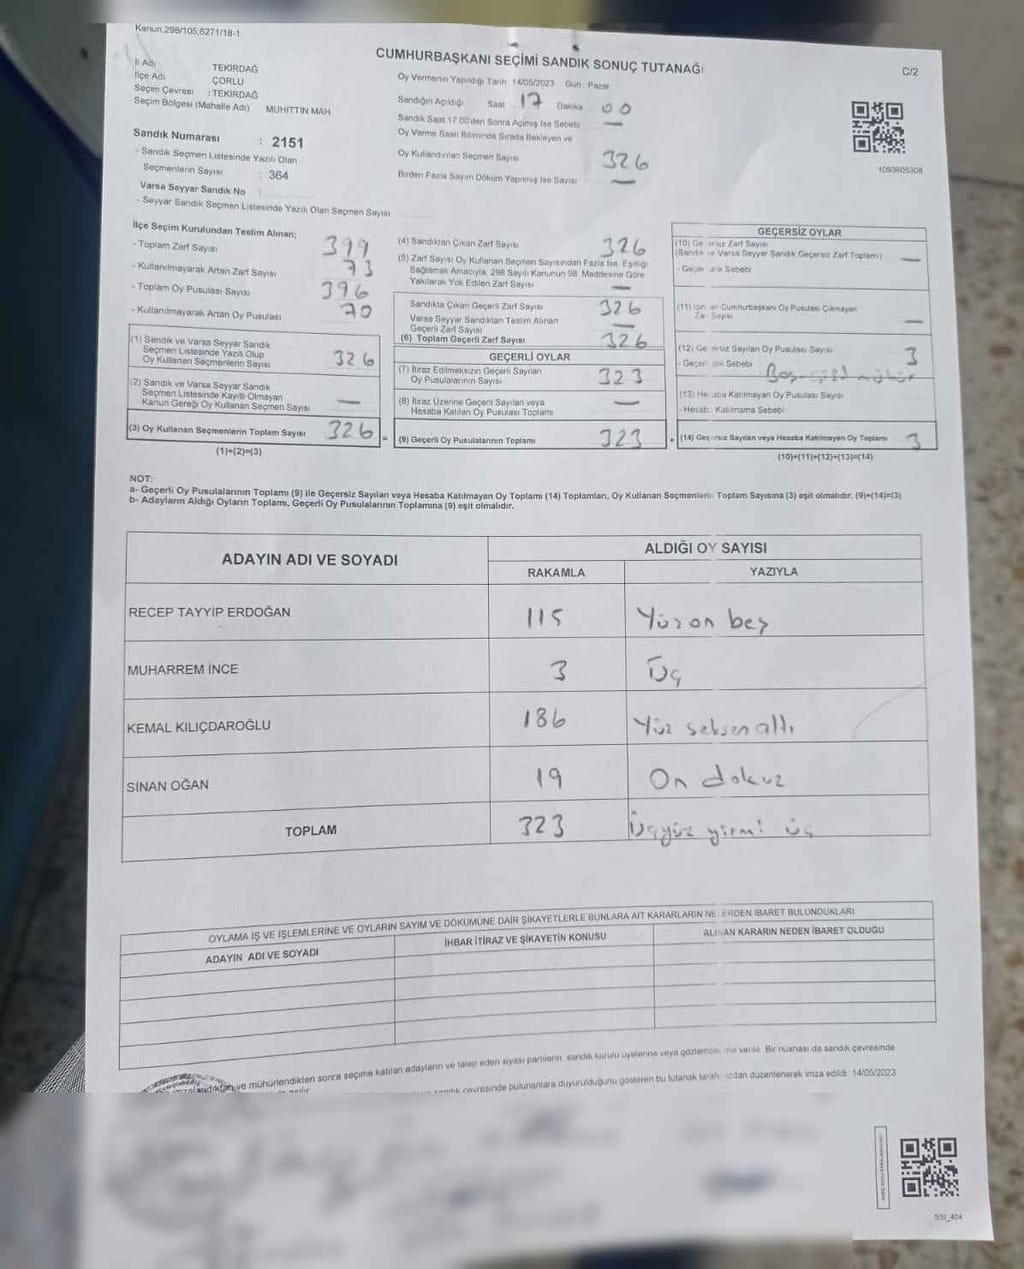 Kanun.298/105,6271/18-1
CUMHURBAŞKANI SEÇİMİ SANDIK SONUÇ TUTANAĞI
C/2
İl Adı TEKİRDAĞ
İlçe Adı ÇORLU
Seçim Çevresi : TEKİRDAĞ
Seçim Bölgesi (Mahalle Adı) MUHİTTİN MAH
Sandık Numarası : 2151
- Sandık Seçmen Listesinde Yazılı Olan
Seçmenlerin Sayısı : 364
Varsa Seyyar Sandık No :
- Seyyar Sandık Seçmen Listesinde Yazılı Olan Seçmen Sayısı
Oy Vermenin Yapıldığı Tarih : 14/05/2023 Gün : Pazar
Sandığın Açıldığı Saat 17 Dakika 00
Sandık Saat 17.00'den Sonra Açılmış İse Sebebi —
Oy Verme Saati Bitiminde Sırada Bekleyen ve
Oy Kullandırılan Seçmen Sayısı 326
Birden Fazla Sayım Döküm Yapılmış İse Sayısı —
1093605308
İlçe Seçim Kurulundan Teslim Alınan;
- Toplam Zarf Sayısı 399
- Kullanılmayarak Artan Zarf Sayısı 73
- Toplam Oy Pusulası Sayısı 396
- Kullanılmayarak Artan Oy Pusulası 70
(1) Sandık ve Varsa Seyyar Sandık
Seçmen Listesinde Yazılı Olup
Oy Kullanan Seçmenlerin Sayısı 326
(2) Sandık ve Varsa Seyyar Sandık
Seçmen Listesinde Kayıtlı Olmayan
Kanun Gereği Oy Kullanan Seçmen Sayısı —
(3) Oy Kullanan Seçmenlerin Toplam Sayısı 326
(1)+(2)=(3)
(4) Sandıktan Çıkan Zarf Sayısı 326
(5) Zarf Sayısı Oy Kullanan Seçmen Sayısından Fazla İse, Eşitliği
Sağlamak Amacıyla, 298 Sayılı Kanunun 98. Maddesine Göre
Yakılarak Yok Edilen Zarf Sayısı —
Sandıkta Çıkan Geçerli Zarf Sayısı 326
Varsa Seyyar Sandıktan Teslim Alınan
Geçerli Zarf Sayısı —
(6) Toplam Geçerli Zarf Sayısı 326
GEÇERLİ OYLAR
(7) İtiraz Edilmeksizin Geçerli Sayılan
Oy Pusulalarının Sayısı 323
(8) İtiraz Üzerine Geçerli Sayılan veya
Hesaba Katılan Oy Pusulası Toplamı —
= (9) Geçerli Oy Pusulalarının Toplamı 323
GEÇERSİZ OYLAR
(10) Geçersiz Zarf Sayısı
(Sandık ve Varsa Seyyar Sandık Geçersiz Zarf Toplamı) —
- Geçersizlik Sebebi
(11) Cumhurbaşkanı Oy Pusulası Çıkmayan
Zarf Sayısı —
(12) Geçersiz Sayılan Oy Pusulası Sayısı 3
- Geçersizlik Sebebi Boş-çift mühür
(13) Hesaba Katılmayan Oy Pusulası Sayısı
- Hesaba Katılmama Sebebi
+ (14) Geçersiz Sayılan veya Hesaba Katılmayan Oy Toplamı 3
(10)+(11)+(12)+(13)=(14)
NOT:
a- Geçerli Oy Pusulalarının Toplamı (9) ile Geçersiz Sayılan veya Hesaba Katılmayan Oy Toplamı (14) Toplamları, Oy Kullanan Seçmenlerin Toplam Sayısına (3) eşit olmalıdır. (9)+(14)=(3)
b- Adayların Aldığı Oyların Toplamı, Geçerli Oy Pusulalarının Toplamına (9) eşit olmalıdır.
ADAYIN ADI VE SOYADI ALDIĞI OY SAYISI
RAKAMLA YAZIYLA
RECEP TAYYİP ERDOĞAN 115 Yüz on beş
MUHARREM İNCE 3 Üç
KEMAL KILIÇDAROĞLU 186 Yüz seksen altı
SİNAN OĞAN 19 On dokuz
TOPLAM 323 Üçyüz yirmi üç
OYLAMA İŞ VE İŞLEMLERİNE VE OYLARIN SAYIM VE DÖKÜMÜNE DAİR ŞİKAYETLERLE BUNLARA AİT KARARLARIN NELERDEN İBARET BULUNDUKLARI
ADAYIN ADI VE SOYADI İHBAR İTİRAZ VE ŞİKAYETİN KONUSU ALINAN KARARIN NEDEN İBARET OLDUĞU
ve mühürlendikten sonra seçime katılan adayların ve talep eden siyasi partilerin sandık kurulu üyelerine veya verilir. Bir nüshası da sandık çevresinde
çevresinde bulunanlara duyurulduğunu gösteren bu tutanak düzenlenerek imza edildi. 14/05/2023
SSI_404